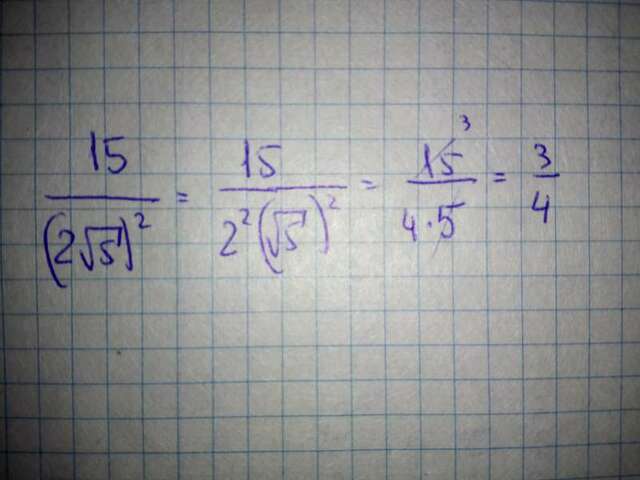 15/(2√5)² = 15/2²(√5)² = 15³/4·5 = 3/4